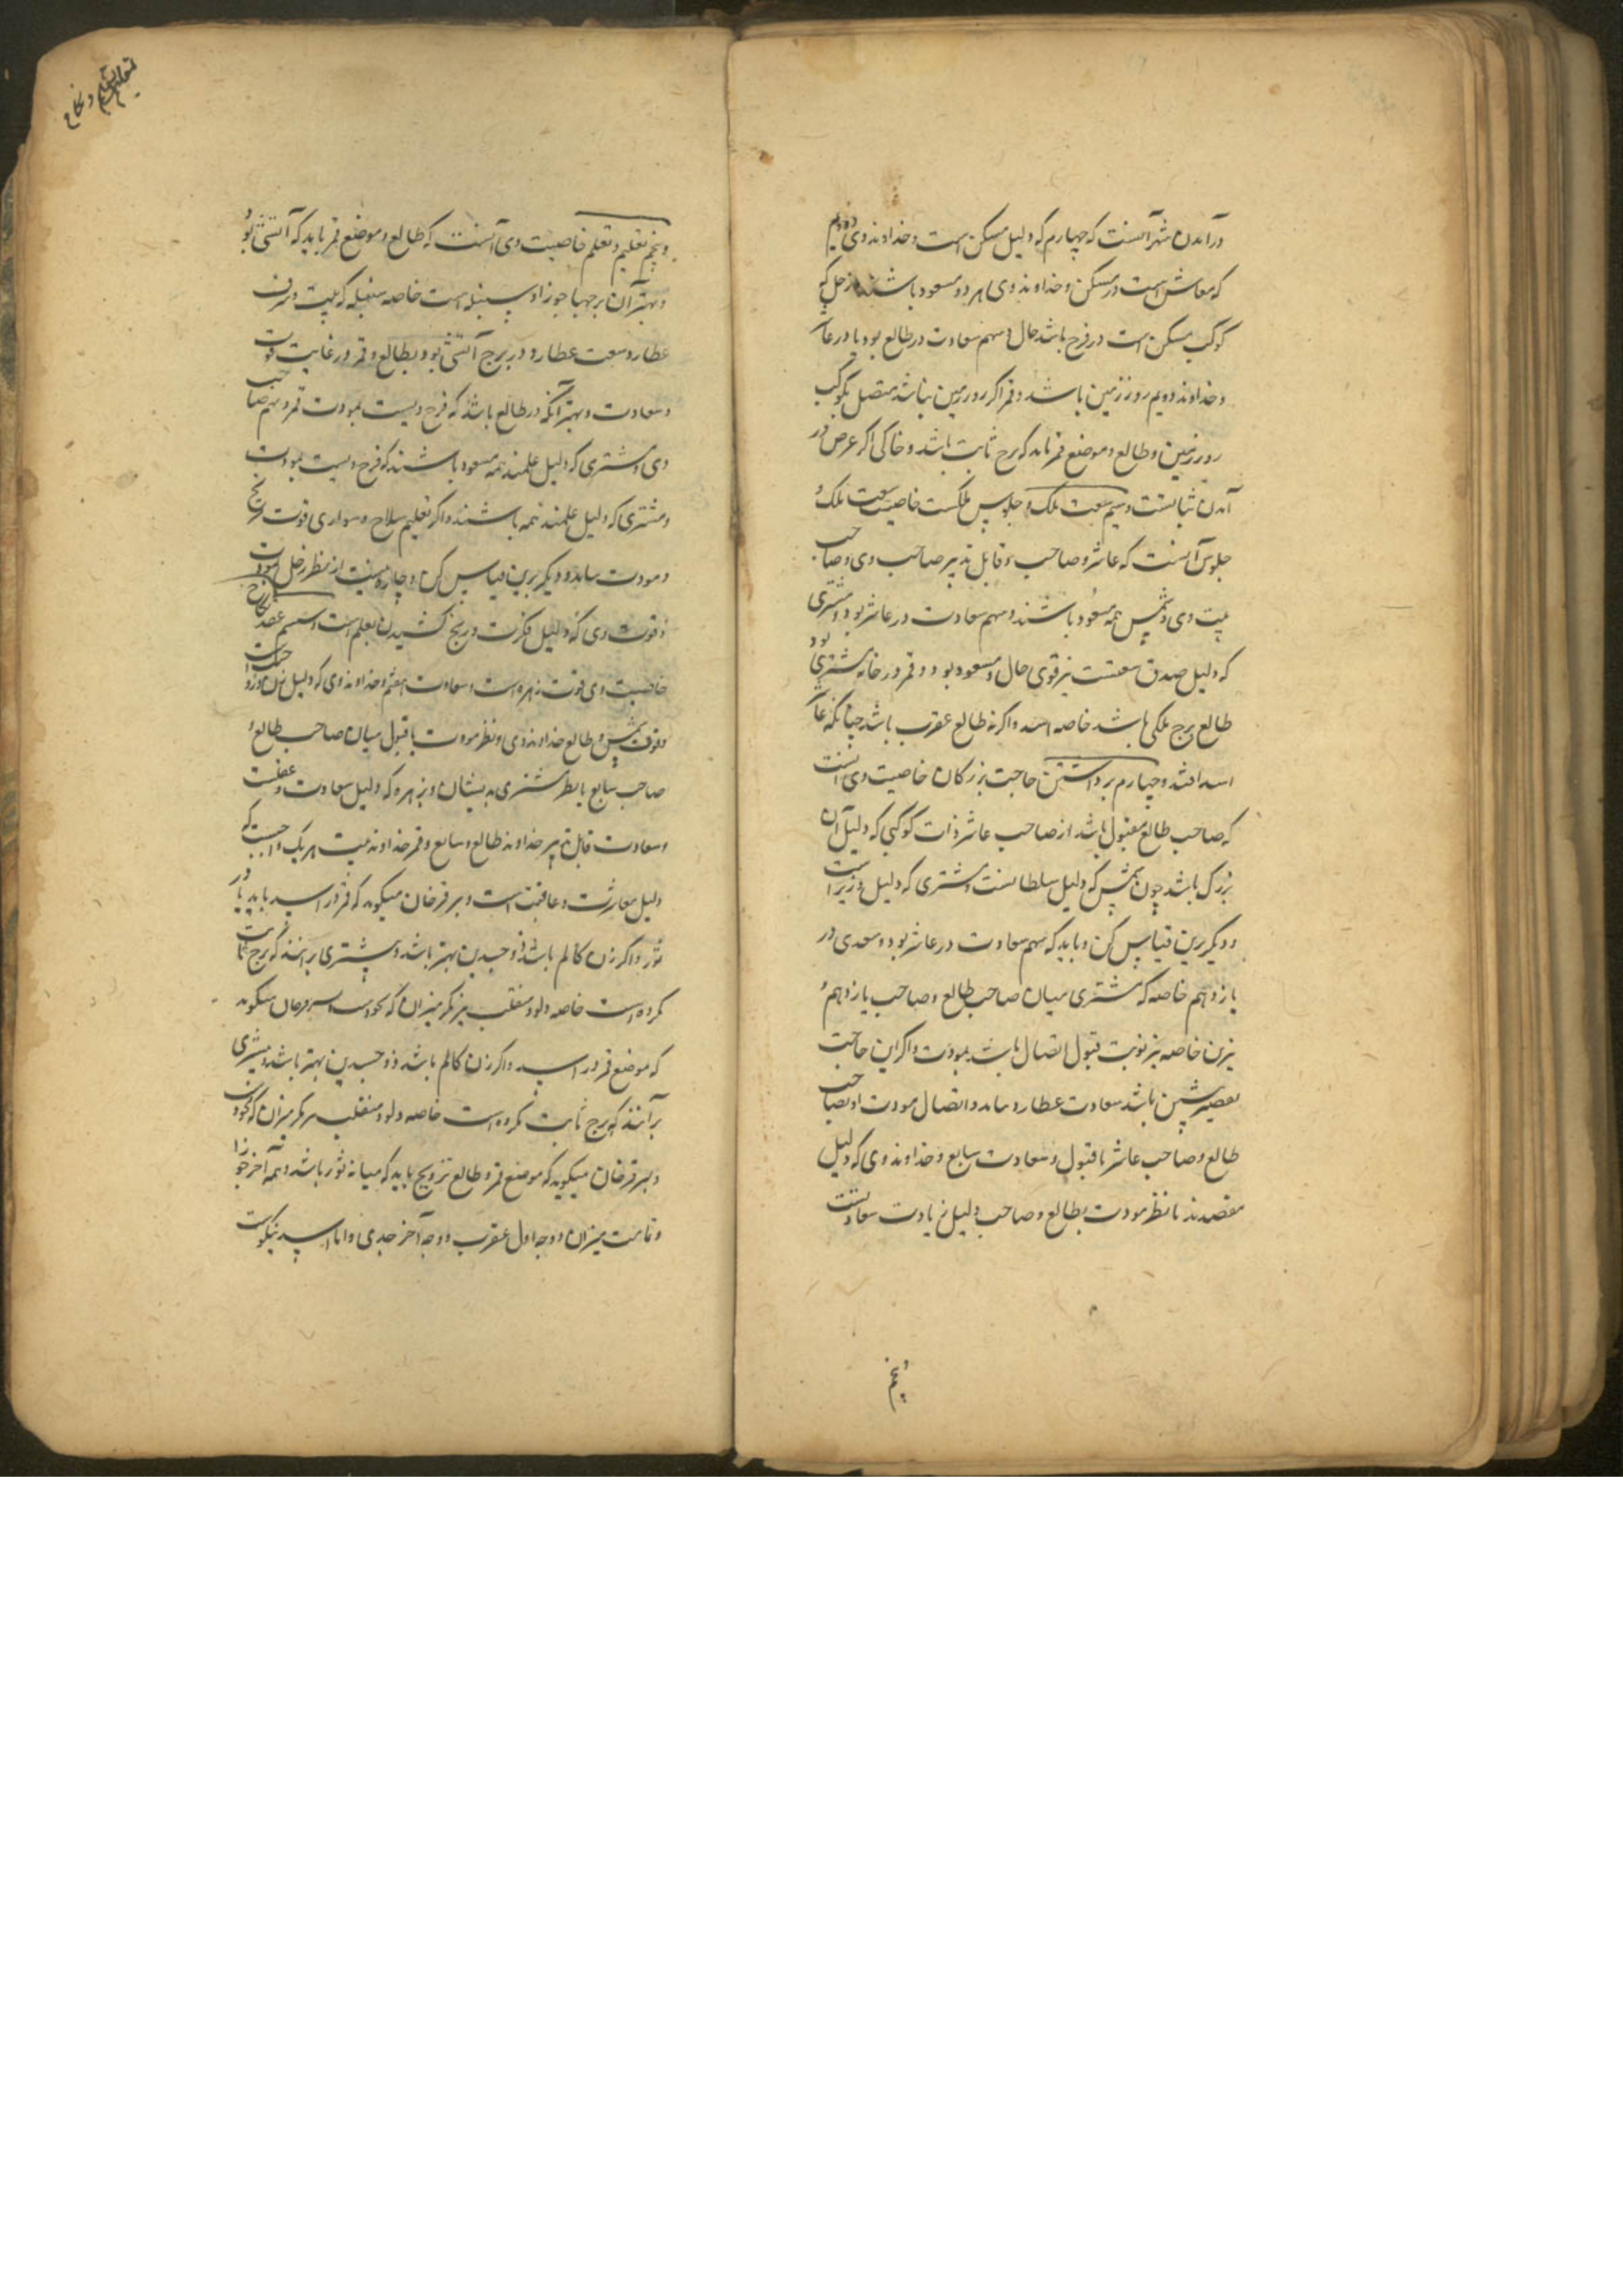 درآمدن شهر آنست که چهارم که دلیل مسکن است و خداوند وی و دویم
که معاش است در مسکن و خداوند وی هر دو مسعود باشند و زحل که
کوکب مسکن است در فرح باشد حال و سهم سعادت در طالع بود یا در عا
و خداوند دویم روز زمین باشد و قمر اگر روز زمین نباشد متصل بکوکب
روز زمین و طالع و موضع قمر باید که برج ثابت باشد و خاکی اگر غرض در
آمدن ثباتست و سیم بیعت ملک و جلوس ملکست خاصیت بیعت ملک و
جلوس آنست که عاشر و صاحب و قابل تدبیر صاحب وی و صاحب
بیت وی و شمس همه مسعود باشند و سهم سعادت در عاشر بود و مشتری
که دلیل صدق بیعتست نیز قوی حال و مسعود بود و قمر در خانه مشتری بود
طالع برج ملکی باشد خاصه اسد و اگر نه طالع عقرب باشد چنانکه عا
اسد افتد و چهارم برداشتن حاجت بزرگان خاصیت وی آنست
که صاحب طالع مقبول باشد از صاحب عاشر و ذات کوکبی که دلیل آن
بزرگ باشد چون شمس که دلیل سلطانست و مشتری که دلیل وزیر است
و دیگر برین قیاس کن و باید که سهم سعادت در عاشر بود و سعدی در
یازدهم خاصه که مشتری میان صاحب طالع و صاحب یازدهم و
نیزین خاصه نیز نوبت قبول اتصال باشد بمودت و اگر این حاجت
باشد سعادت عطارد باید و اتصال مودت او بصاحب
طالع و صاحب عاشر با قبول و سعادت سابع و خداوند وی که دلیل
مقصدند با نظر مودت بطالع و صاحب دلیل زیادت سعادتست
و پنجم
تعلیم و نکاح
و پنجم تعلیم و تعلم خاصیت وی آنست که طالع و موضع قمر باید که آتشی بود
و بهتر آن برجها جوزا و سنبله است خاصه سنبله که بیت و شرف
عطارد و بیعت عطارد در برج آتشی بود و بطالع و قمر در غایت قوت
و سعادت و بهتر آنکه در طالع باشد که فرح ویست بمودت قمر و سهم صاحب
وی و مشتری که دلیل علمند همه مسعود باشند که فرح ویست بمودت
و مشتری که دلیل علمند همه باشند و اگر تعلیم سلاح و سواری قوت مریخ
و مودت باید و دیگر برین قیاس کن و چاره نیست از نظر زحل بمودت
و قوت وی که دلیل فکرت و رنج کشیدن تعلم است و ششم عقد نکاح
خاصیت وی قوت زهره است و سعادت هفتم و خداوند وی که دلیل زن
و قوت شمس و طالع خداوند وی و نظر مودت با قبول میان صاحب طالع و
صاحب سابع با نظر مشتری به ایشان و بزهره که دلیل سعادت و عفتست
و سعادت قابل تدبیر خداوند طالع و سابع و قمر خداوند بیت هر یک واجبست که
دلیل معاشرت و عاقبت است و سرقرخان میگوید که قمر در اسد باید یا در
ثور و اگر زن کالم باشد ذو جسدین بهتر باشد و بیشتری بر آنند که برج ثابت
کرده است خاصه دلو و منقلب نیز مگر میزان که محمودست سرقرخان میگوید
که موضع قمر در اسد و اگر زن کالم باشد ذو جسدین بهتر باشد و بیشتری
بر آنند که برج ثابت کرده است خاصه دلو و منقلب نیز مگر میزان که محمود
و سرقرخان میگوید که موضع قمر و طالع تزویج باید که میانه ثور باشد و نیمه آخر جوزا
و تمامت میزان و وجه اول عقرب و وجه آخر جدی و اما اسد نیکوست